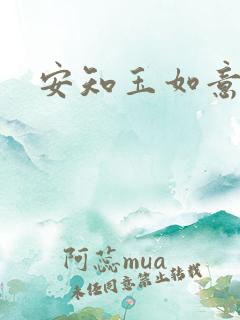 安知玉如意
阿蕊mua
未经同意禁止转载